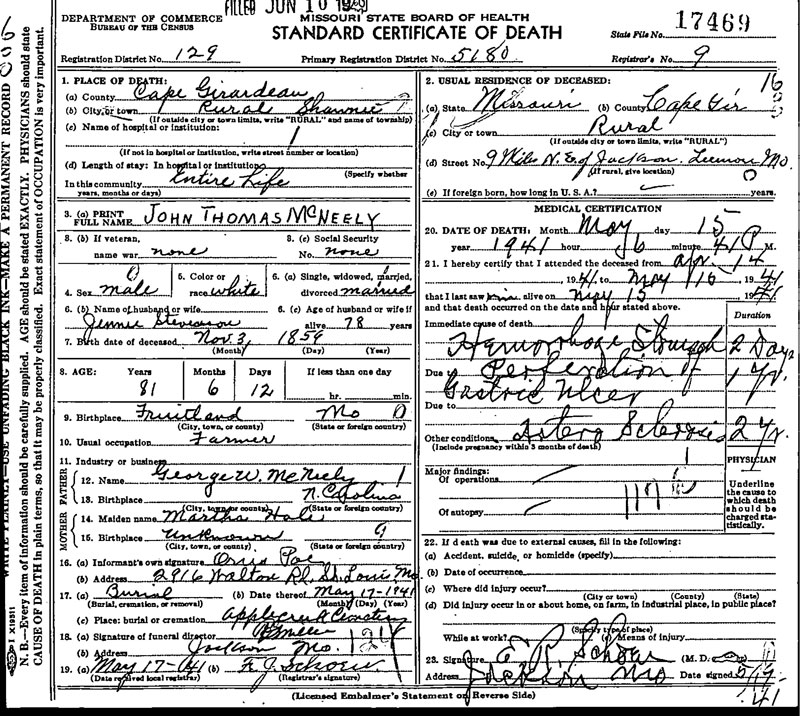 FILED JUN 10 1941
DEPARTMENT OF COMMERCE
BUREAU OF THE CENSUS
MISSOURI STATE BOARD OF HEALTH
STANDARD CERTIFICATE OF DEATH
State File No. 17469
Registration District No. 129
Primary Registration District No. 5180
Registrar's No. 9
WRITE PLAINLY—USE UNFADING BLACK INK—MAKE A PERMANENT RECORD
N. B.—Every item of information should be carefully supplied. AGE should be stated EXACTLY. PHYSICIANS should state
CAUSE OF DEATH in plain terms, so that it may be properly classified. Exact statement of OCCUPATION is very important.
1. PLACE OF DEATH:
(a) County Cape Girardeau
(b) City or town Rural Shawnee
(If outside city or town limits, write "RURAL" and name of township)
(c) Name of hospital or institution:
(If not in hospital or institution, write street number or location)
(d) Length of stay: In hospital or institution
(Specify whether
In this community Entire Life
years, months or days)
3. (a) PRINT FULL NAME JOHN THOMAS MCNEELY
3. (b) If veteran, name war none
3. (c) Social Security No. none
4. Sex male
5. Color or race white
6. (a) Single, widowed, married, divorced married
6. (b) Name of husband or wife Jennie Stevenson
6. (c) Age of husband or wife if alive 78 years
7. Birth date of deceased Nov. 3, 1859
(Month) (Day) (Year)
8. AGE: Years Months Days If less than one day
81 6 12 hr. min.
9. Birthplace Fruitland Mo
(City, town, or county) (State or foreign country)
10. Usual occupation Farmer
11. Industry or business
FATHER
12. Name George W. McNeely
13. Birthplace N. Carolina
(City, town, or county) (State or foreign country)
MOTHER
14. Maiden name Martha Hale
15. Birthplace Unknown 9
(City, town, or county) (State or foreign country)
16. (a) Informant's own signature Poe
(b) Address 2916 Walton Rd. St. Louis Mo
17. (a) Burial (b) Date thereof May 17-1941
(Burial, cremation, or removal) (Month) (Day) (Year)
(c) Place: burial or cremation Applecreek Cemetery
18. (a) Signature of funeral director
(b) Address Jackson Mo. 124
19. (a) May 17-41 (b)
(Date received local registrar) (Registrar's signature)
2. USUAL RESIDENCE OF DECEASED:
(a) State Missouri (b) County Cape Gir
(c) City or town Rural
(If outside city or town limits, write "RURAL")
(d) Street No. 9 Miles N.E. of Jackson. Mo.
(If rural, give location)
(e) If foreign born, how long in U. S. A.? years.
MEDICAL CERTIFICATION
20. DATE OF DEATH: Month May day 15
year 1941 hour 6 minute 41 P M.
21. I hereby certify that I attended the deceased from Apr. 14
, 1941 to May 16, 1941
that I last saw him alive on May 15, 1941
and that death occurred on the date and hour stated above.
Duration
Immediate cause of death
Hemorrhage Stomach 2 Days
Due to Perforation of 1 yr.
Gastric Ulcer
Due to
Other conditions Artero Sclerosis 2 yr.
(Include pregnancy within 3 months of death)
PHYSICIAN
Major findings:
Of operations
Of autopsy
Underline the cause to which death should be charged statistically.
22. If death was due to external causes, fill in the following:
(a) Accident, suicide, or homicide (specify)
(b) Date of occurrence
(c) Where did injury occur?
(City or town) (County) (State)
(d) Did injury occur in or about home, on farm, in industrial place, in public place?
(Specify type of place)
While at work? (e) Means of injury
23. Signature (M. D.
Address Jackson Mo Date signed 5/17-41
(Licensed Embalmer's Statement on Reverse Side)